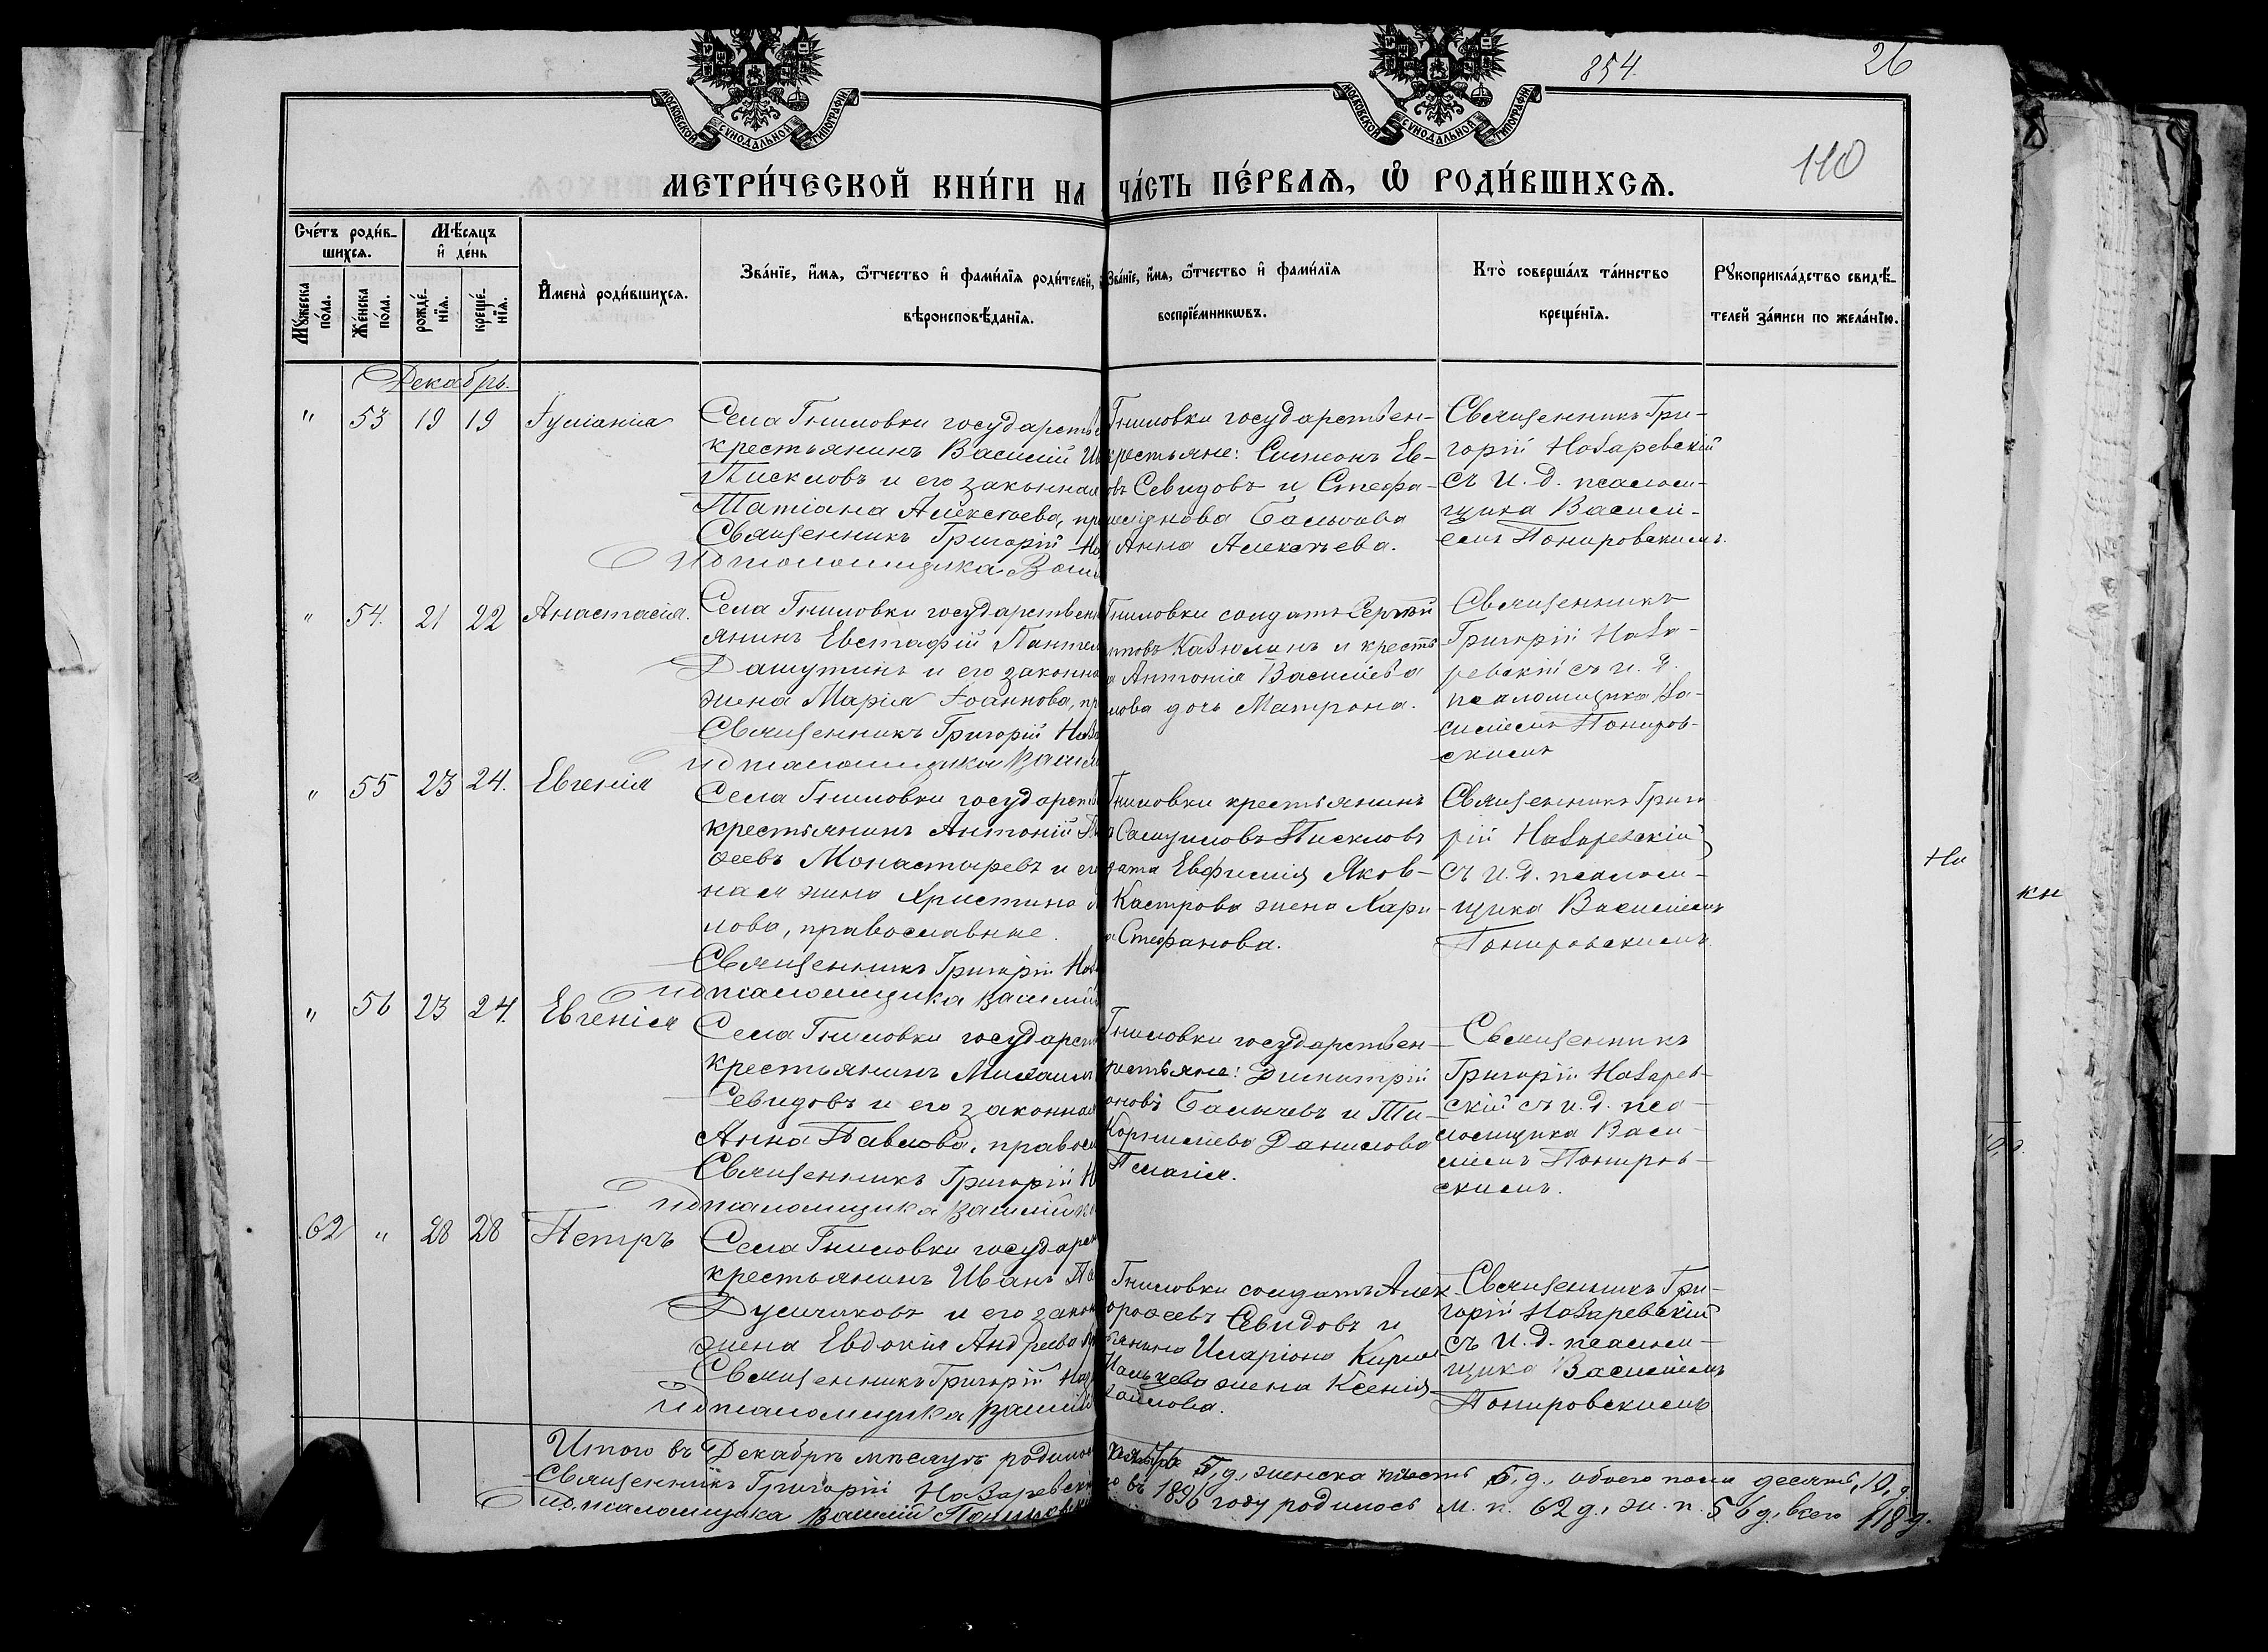 854.
26
110
МОСКОВСКОЙ СУНОДАЛЬНОЙ ТИПОГРАФІИ
МОСКОВСКОЙ СУНОДАЛЬНОЙ ТИПОГРАФІИ
МЕТРИ́ЧЕСКОЙ КНИ́ГИ НА
ЧА́СТЬ ПЕ́РВАѦ, Ѡ РОДИ́ВШИХСѦ.
Сче́тъ роди́в-
шихсѧ.
Мꙋ́жеска по́ла.
Же́нска по́ла.
Мѣ́сяцъ
и҆ де́нь
рожде́-
нїѧ.
креще́-
нїѧ.
И҆мена̀ роди́вшихсѧ.
Зва́нїе, и҆́мѧ, ѻ҆́тчество и҆ фами́лїѧ роди́телей,
вѣроисповѣ́данїѧ.
Зва́нїе, и҆́мѧ, ѻ҆́тчество и҆ фами́лїѧ
воспрїе́мникѡвъ.
Кто̀ соверша́лъ та́инство
креще́нїѧ.
Рꙋкоприкла́дство свидѣ́-
телей за́писи по жела́нїю.
Декабрь.
" 53 19 19 Іуліанія
Села Гниловки государств
крестьянинъ Василій Ив
Писκловъ и его законная
Татіана Алексѣева, пр
Священникъ Григорій На
И д псаломщика Васи
Гниловки государствен-
крестьяне: Симеонъ Ев-
овъ Севидовъ и Стефа-
Анна Алексѣева.
Священникъ Гри-
горій Назаревскій
съ и. д. псаломщ-
щика Василі-
емъ Понировскимъ.
" 54. 21 22 Анастасія.
Села Гниловки государствен
янинъ Евстафій Пантел
Дашутинъ и его законна
жена Марія Іоаннова, пр
Священникъ Григорій Наза
и д псаломщика Васил
Гниловки солдатъ Сергѣй
и крестья
а Антонія Васильева
лова дочь Матрона.
Священникъ
Григорій Наза-
ревскій съ и. д.
псаломщика Ва-
силіемъ Пониров-
скимъ
" 55 23 24. Евгенія
Села Гниловки государств
крестьянинъ Антоній Ти
ѳеевъ Монастыревъ и ег
ная жена Христина
лова, православные.
Священникъ Григорій Наз
и д псаломщика Василій
Гниловки крестьянинъ
Самуиловъ Писκловъ
дата Евфимія Яков-
Кастрова жена Хари-
а Стефанова.
Священникъ Григо
рій Назаревскій
съ и. д. псаломщ-
щика Василіемъ
Понировскимъ
" 56 23 24. Евгенія
Села Гниловки государств
крестьянинъ Михаилъ
Севидовъ и его законная
Анна Павлова, правосл
Священникъ Григорій Н
и д псаломщика Василій
Гниловки государствен-
рестьяне: Димитрій
оновъ Балычевъ и Ти-
Корнильева Данилова
Пелагія.
Священникъ
Григорій Назарев-
скій съ и. д. пса-
ломщика Васи-
ліемъ Пониров-
скимъ.
62 " 28 28 Петръ
Села Гниловки государств
крестьянинъ Иванъ Па
и его закон
жена Евдокія Андреева
Священникъ Григорій Наз
и д псаломщика Василій
Гниловки солдатъ Алек
ороѳеевъ Севидовъ и
ьянина Иларіона Кирил
жена Ксенія
хайлова.
Священникъ Гри-
горій Назаревскій
съ и. д. псаломщ-
щика Василіемъ
Понировскимъ
На
кн
Итого въ Декабрѣ мѣсяцѣ родилось
5, д., женска 5, д., обоего пола десять, 10, д.
Священникъ Григорій Назаревскій
въ 1896 году родилось м. п. 62 д., ж. п. 56 д., всего 118 д.
и д. псаломщика Василій Понировскій